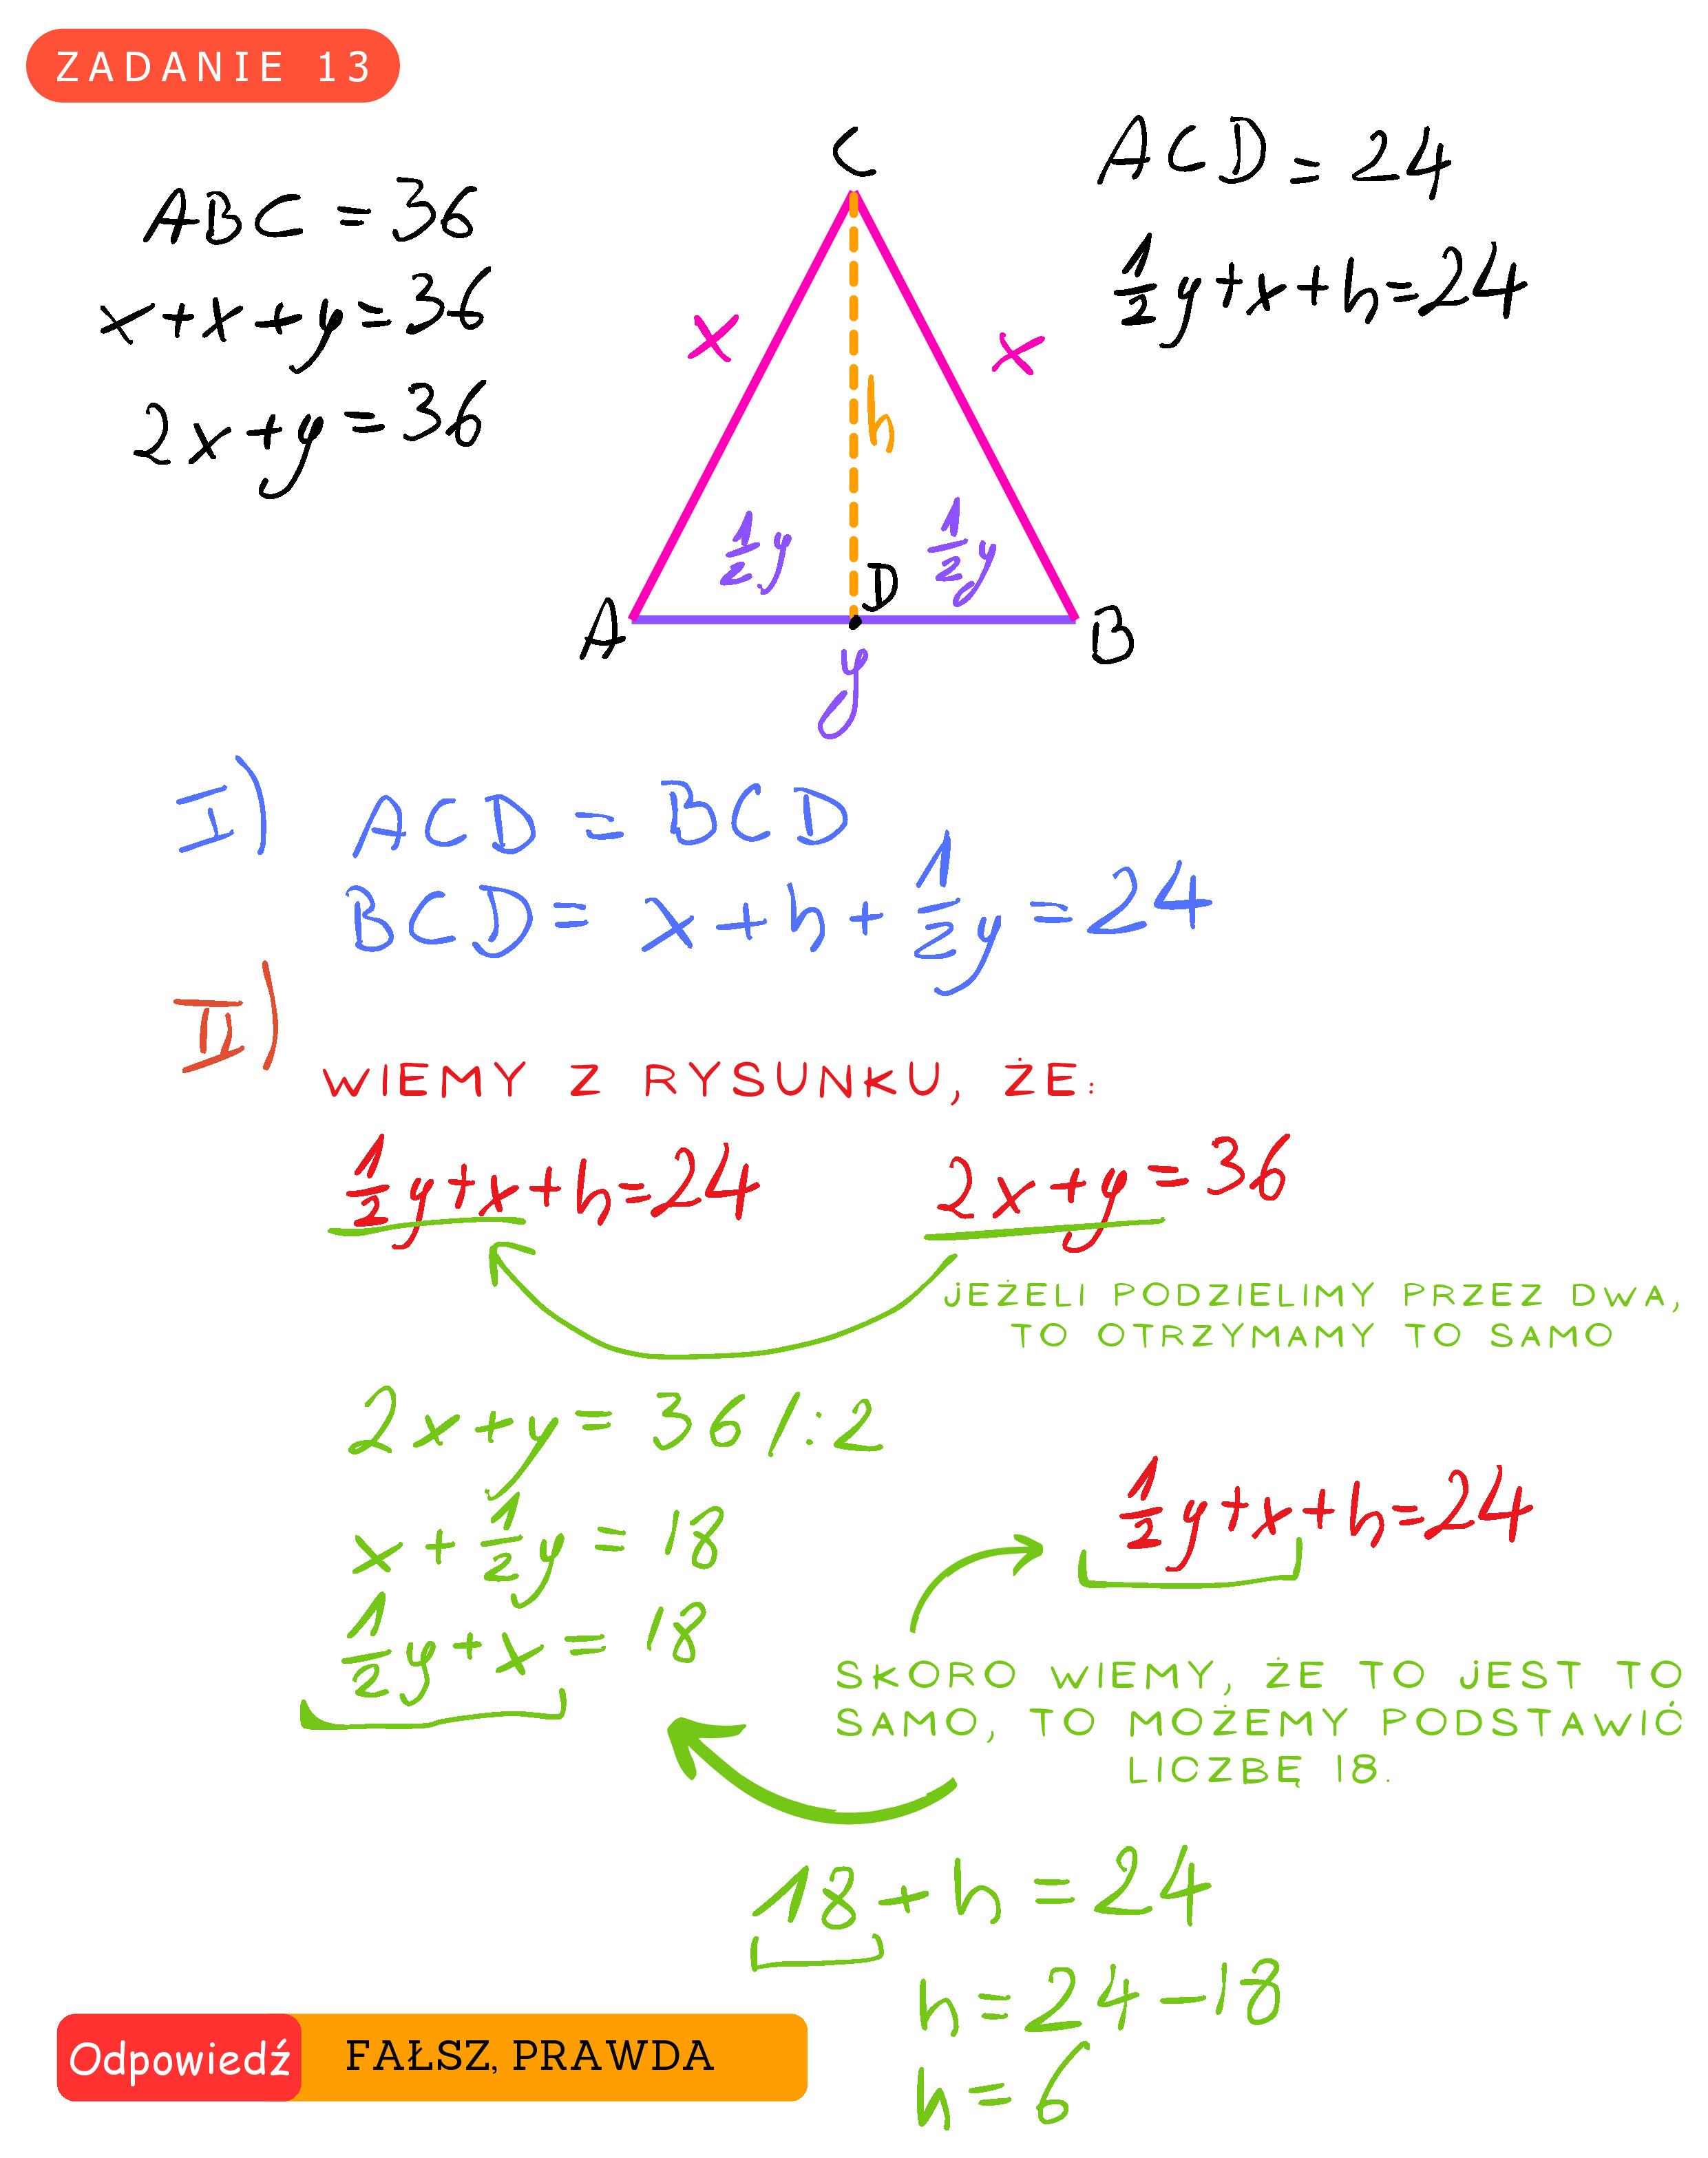 ZADANIE 13
ABC = 36
x+x+y=36
2x+y=36
C
x
x
h
½y
½y
D
A
B
y
ACD = 24
½y+x+h=24
I) ACD = BCD
BCD = x+h+½y=24
II)
WIEMY Z RYSUNKU, ŻE:
½y+x+h=24
2x+y=36
JEŻELI PODZIELIMY PRZEZ DWA,
TO OTRZYMAMY TO SAMO
2x+y=36/:2
x+½y=18
½y+x=18
½y+x+h=24
SKORO WIEMY, ŻE TO JEST TO
SAMO, TO MOŻEMY PODSTAWIĆ
LICZBĘ 18.
18+h=24
h=24-18
h=6
Odpowiedź FAŁSZ, PRAWDA